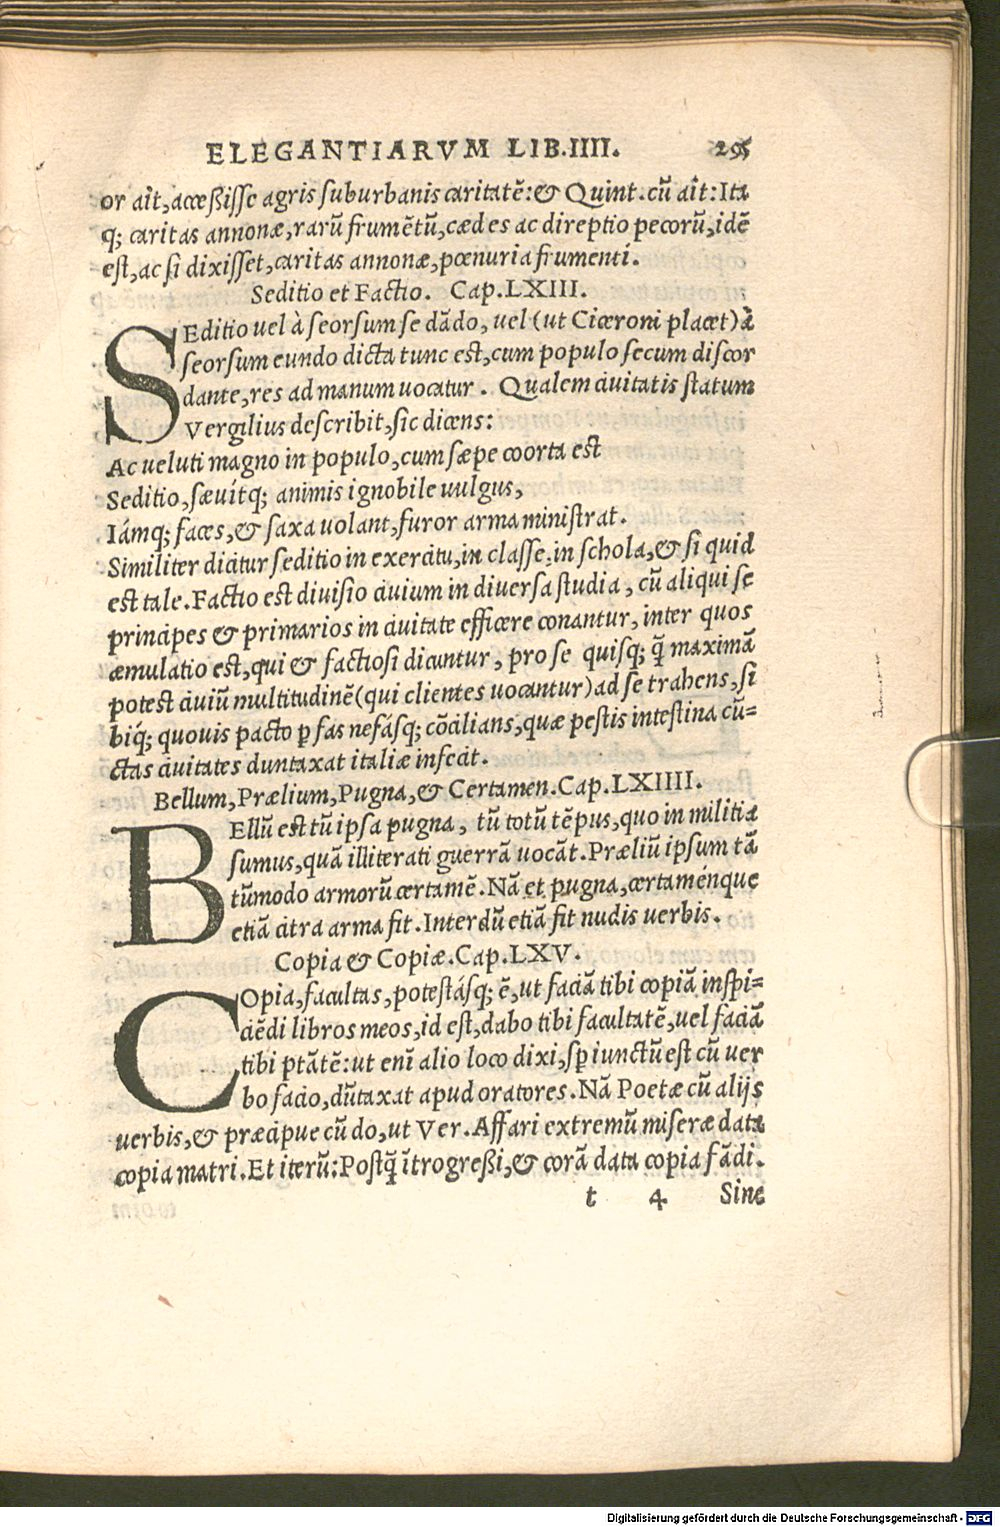 ELEGANTIARVM LIB.IIII. 295
or aît, accessisse agris suburbanis caritatẽ: & Quint. cũ aît: Ita
q; caritas annonæ, rarũ frumẽtũ, cædes ac direptio pecorũ, idẽ
est, ac si dixisset, caritas annonæ, pœnuria frumenti.
Seditio et Factio. Cap. LXIII.
SEditio uel à seorsum se dãdo, uel (ut Ciceroni placet) à
seorsum eundo dicta tunc est, cum populo secum discor
dante, res ad manum uocatur. Qualem ciuitatis statum
Vergilius describit, sic dicens:
Ac ueluti magno in populo, cum sæpe coorta est
Seditio, sæuítq; animis ignobile uulgus,
Iámq; faces, & saxa uolant, furor arma ministrat.
Similiter dicitur seditio in exercitu, in classe, in schola, & si quid
est tale. Factio est diuisio ciuium in diuersa studia, cũ aliqui se
principes & primarios in ciuitate efficere conantur, inter quos
æmulatio est, qui & factiosi dicuntur, pro se quisq; q̃ maximã
potest ciuiũ multitudinẽ (qui clientes uocantur) ad se trahens, si
bíq; quouis pacto ꝑ fas nefásq; cõcilians, quæ pestis intestina cũ=
ctas ciuitates duntaxat italiæ infecit.
Bellum, Prælium, Pugna, & Certamen. Cap. LXIIII.
BEllũ est tũ ipsa pugna, tũ totũ tẽpus, quo in militia
sumus, quã illiterati guerrã uocãt. Præliũ ipsum tã
tũmodo armorũ certamẽ. Nã et pugna, certaménque
etiã citra arma fit. Interdũ etiã fit nudis uerbis.
Copia & Copiæ. Cap. LXV.
COpia, facultas, potestásq; ẽ, ut faciã tibi copiã inspi=
ciẽdi libros meos, id est, dabo tibi facultatẽ, uel faciã
tibi ptãtẽ: ut enĩ alio loco dixi, sꝑ iunctũ est cũ uer
bo facio, dũtaxat apud oratores. Nã Poetæ cũ alijs
uerbis, & præcipue cũ do, ut Ver. Affari extremũ miseræ data
copia matri. Et iterũ: Postq̃ ĩtrogressi, & corã data copia fãdi.
t 4 Sine
Digitalisierung gefördert durch die Deutsche Forschungsgemeinschaft - DFG